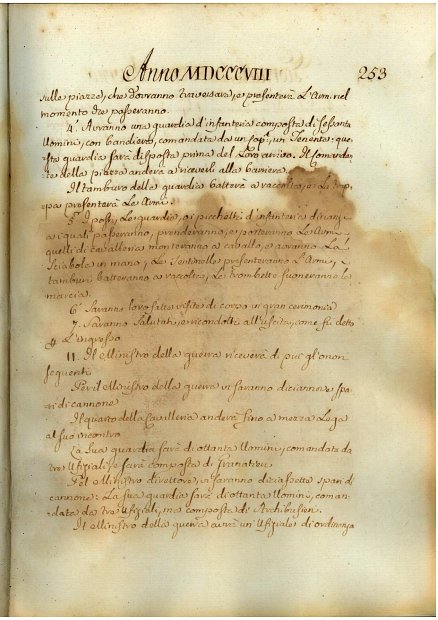 Anno MDCCCVIII 253
sulle piazze, che dovranno traversare, e presenterà L'Armi nel
momento che passeranno.
4.° Avranno una guardia d'infanteria composta di sessanta
Uomini, con bandiera, comandata da un Cap.º, un Tenente: que-
sta guardia sarà disposta prima del Loro arrivo. Il Comandan-
te della piazza anderà a riceverli alla barriera.
Il tamburo della guardia batterà a raccolta, e la trup-
pa presenterà Le Armi.
5.° I posti, Le guardie, o i picchetti d'infanteria dinanzi
a i quali passeranno, prenderanno, e porteranno Le Armi,
quelli di cavalleria monteranno a cavallo, e avranno La
Sciabola in mano, Le Sentinelle presenteranno L'Armi, i
tamburi batteranno a raccolta, Le trombette suoneranno la
marcia.
6.° Saranno loro fatte visite di corpo in gran cerimonia
7. Saranno Salutati, e ricondotti all'uscita, come si è detto
p. L'ingresso
11. Il Ministro della guerra riceverà di più gl'onori
seguenti
Per il Ministro della guerra si faranno diciannove spa-
ri di cannone
Il quarto della Cavalleria anderà fino a mezza Lega
al suo incontro
La sua guardia sarà di ottanta Uomini, comandata da
tre Ufiziali, e sarà composta di Granatieri
Pel Ministro direttore, si faranno diciassette spari di
cannone: La sua guardia sarà di ottanta Uomini, coman-
data da tre Ufiziali, ma composta di Archibusieri.
Il Ministro della guerra avrà un'Ufiziale di ordinanza